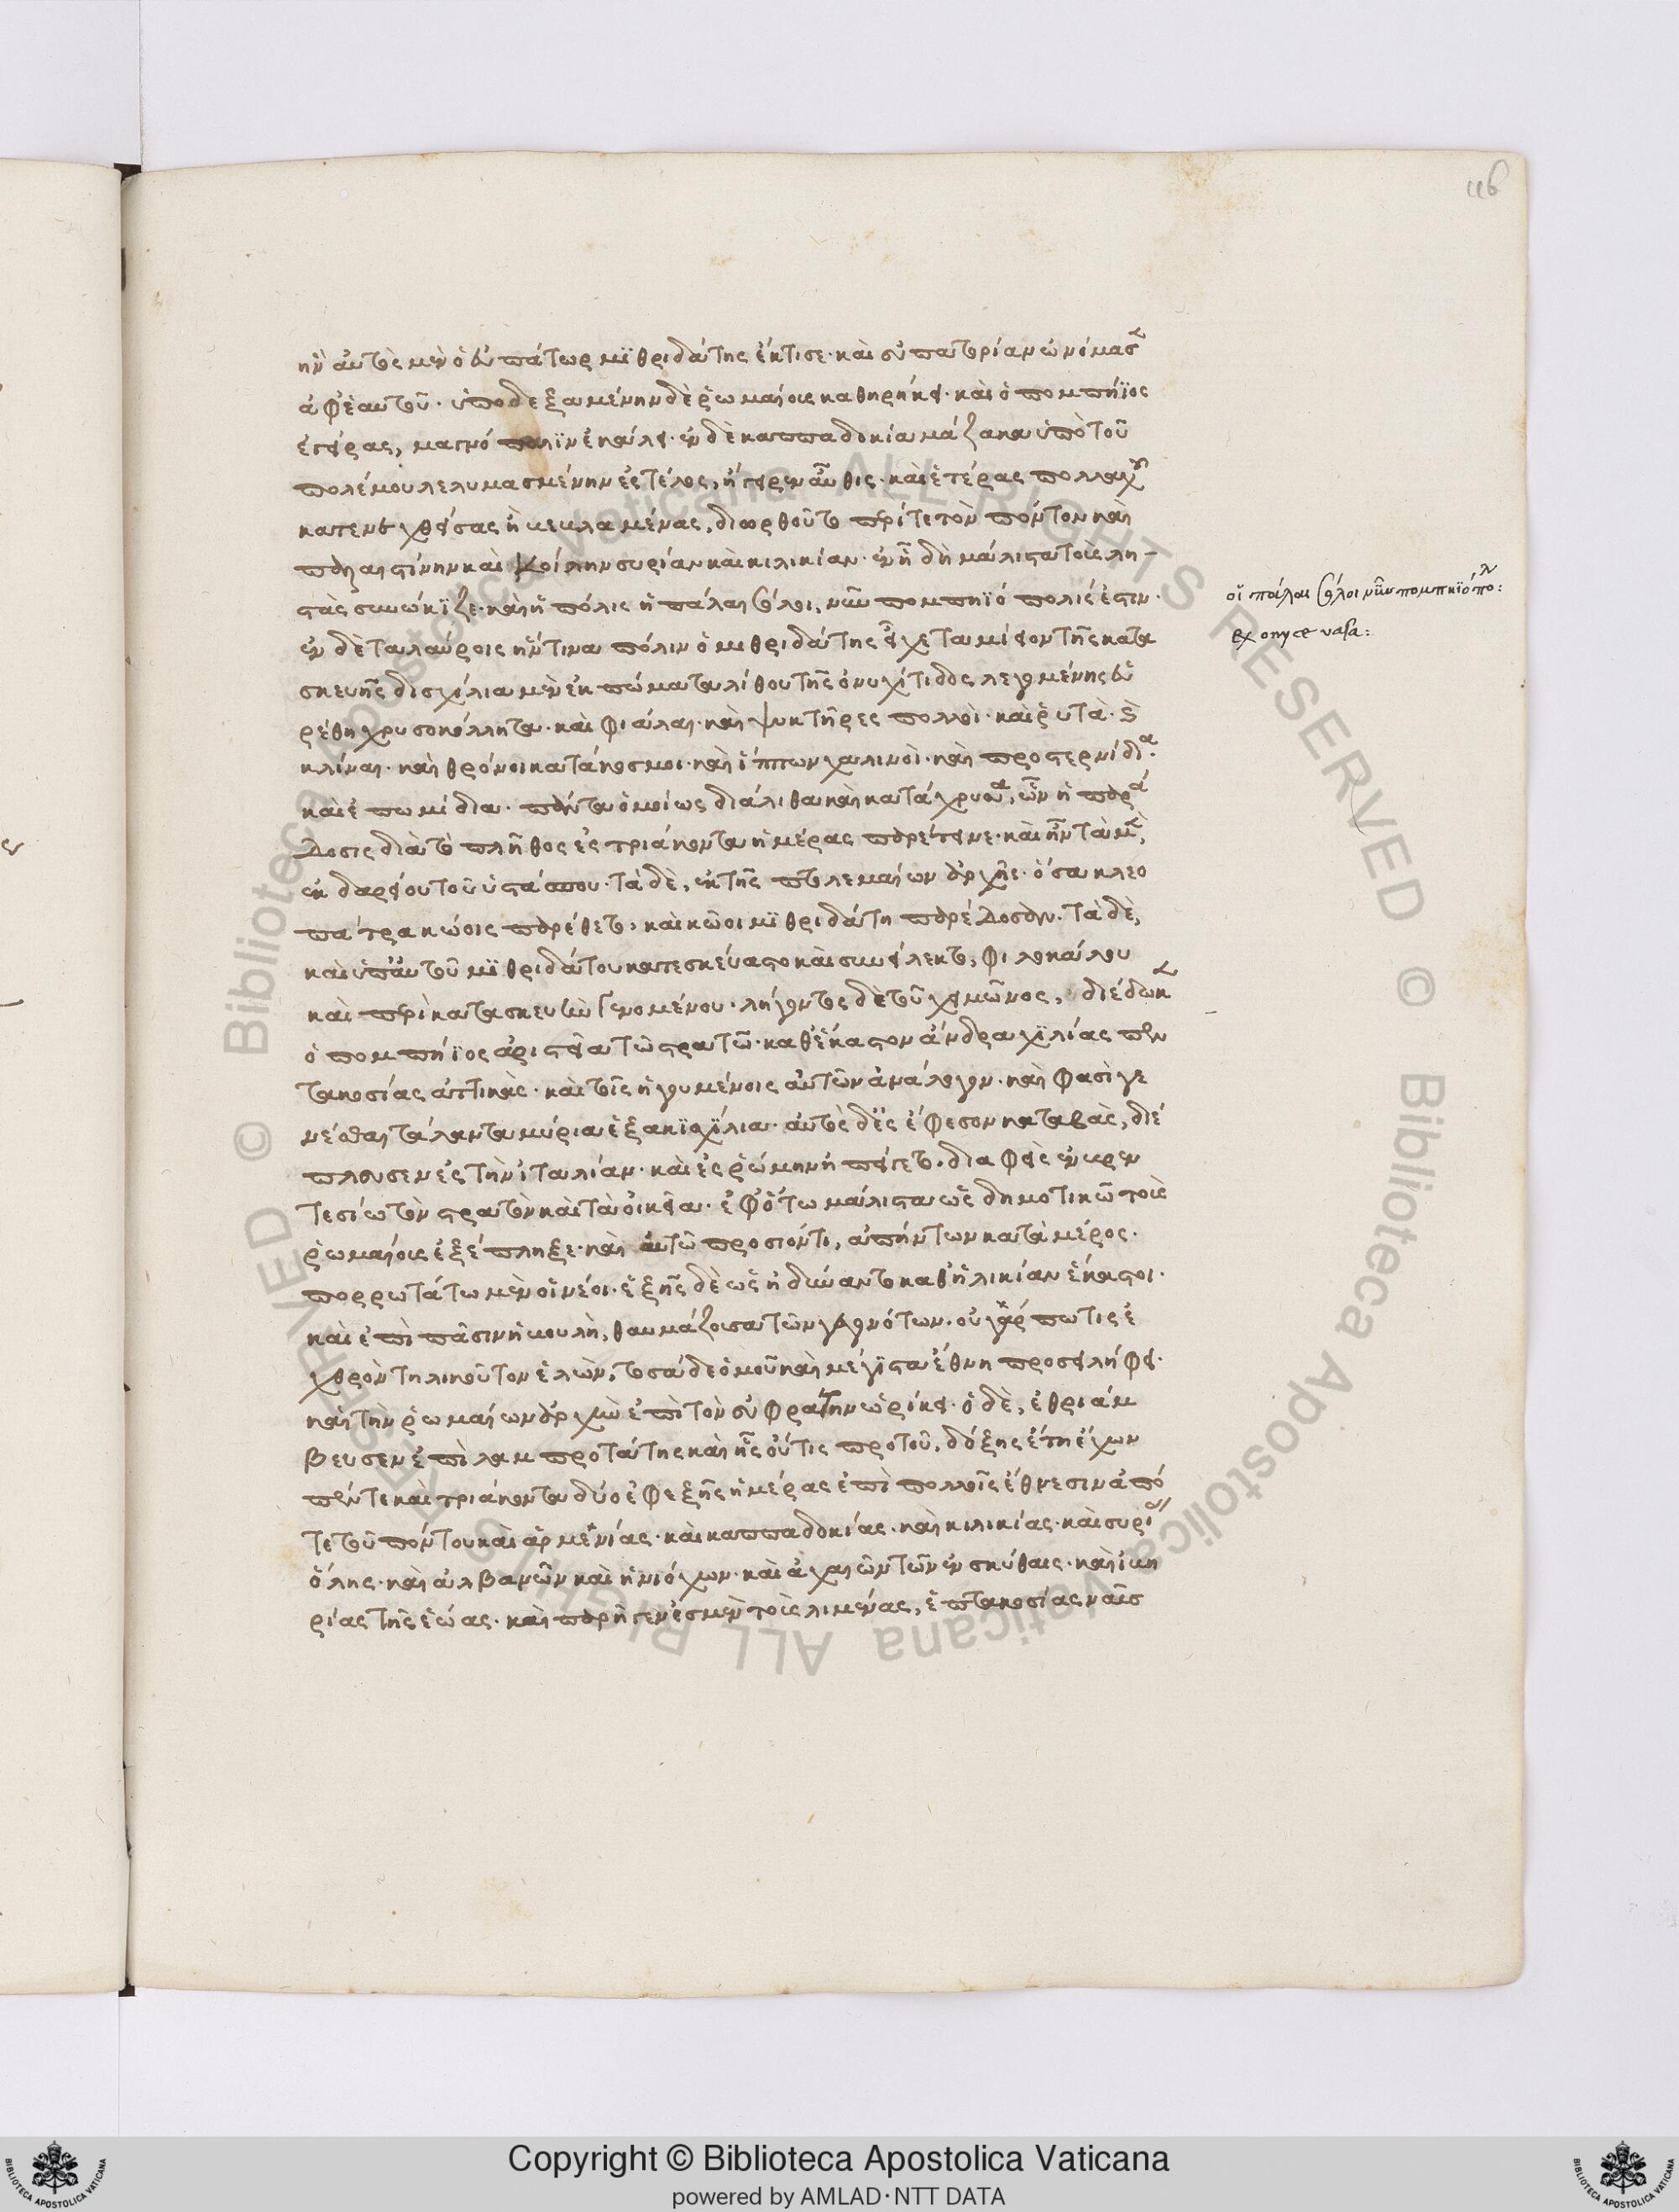 116
ἣν αὐτὸς μὲν ὁ εὐπάτωρ μϊθριδάτης ἔκτισε· καὶ εὐπατορίαν ὠνόμασε
ἀφ' ἑαυτοῦ· ὑποδεξαμένην δὲ ῥωμαίοις καθῃρήκει· καὶ ὁ πομπήϊος
ἐγείρας, μαγνόπολϊν ἐκάλει· ἐν δὲ καππαδοκία μάζακα ὑπὸ τοῦ
πολέμου λελυμασμένην ἐς τέλος, ἤγειρεν αὖθις· καὶ ἑτέρας πολλαχοῦ
κατενεχθείσας ἢ κεκλαμένας, διωρθοῦτο περί τε τὸν πόντον καὶ
παλαιστίνην καὶ κοίλην συρίαν καὶ κιλικίαν· ἐν ᾗ δὴ μάλιστα τοὺς λη-
στὰς συνώκϊζε· καὶ ἡ πόλις ἡ πάλαι σόλοι, νῦν πομπηϊόπολίς ἐστιν·
ἐν δὲ ταλαύροις ἥντινα πόλιν ὁ μιθριδάτης εἶχε ταμιεῖον τῆς κατα
σκευῆς δισχίλια μὲν ἐκπώματα λίθου τῆς ὀνυχίτιδος λεγομένης εὑ
ρέθη χρυσοκόλλητα· καὶ φιάλαι· καὶ ψυκτῆρες πολλοὶ· καὶ ῥυτὰ· καὶ
κλίναι· καὶ θρόνοι κατάκοσμοι· καὶ ἵππων χαλινοὶ· καὶ προστερνίδια·
καὶ ἐπωμίδια· πάντα ὁμοίως διάλιθα καὶ κατάχρυσα, ὧν ἡ παρά
δοσις διὰ τὸ πλῆθος ἐς τριάκοντα ἡμέρας παρέτεινε· καὶ ἦν τὰ μὲν,
ἐκ δαρείου τοῦ ὑστάσπου· τὰ δὲ, ἐκ τῆς πτολεμαίων ἀρχῆς· ὅσα κλεο
πάτρα κώοις παρέθετο· καὶ κῶοι μϊθριδάτη παρέδοσαν· τὰ δὲ,
καὶ ὑπ' αὐτοῦ μϊθριδάτου κατεσκεύαστο καὶ συνείλεκτο, φιλοκάλου
καὶ περὶ κατασκευὴν γενομένου· λήγοντος δὲ τοῦ χειμῶνος, διέδωκε
ὁ πομπήϊος ἀριστεῖα τῶ στρατῶ· καθ' ἕκαστον ἄνδρα χϊλίας πεν
τακοσίας ἀττικὰς· καὶ τοῖς ἡγουμένοις αὐτῶν ἀνάλογον· καὶ φασὶ γε
νέσθαι τάλαντα μύρια ἑξακϊσχίλια· αὐτὸς δ' ἐς ἔφεσον καταβὰς, διέ
πλευσεν ἐς τὴν ἰταλίαν· καὶ ἐς ῥώμην ἠπείγετο, διαφεὶς ἐν βρεν
τεσίω τὸν στρατὸν καὶ τὰ οἰκεῖα· ἐφ' ὅτω μάλιστα ὡς δημοτικῶ τοὺς
ῥωμαίους ἐξέπληξε· καὶ αὐτῶ προσιόντι, ἀπήντων κατὰ μέρος·
πορρωτάτω μὲν οἱ νέοι· ἑξῆς δὲ ὡς ἠδύναντο καθ' ἡλικίαν ἕκαστοι·
καὶ ἐπὶ πᾶσιν ἡ βουλὴ, θαυμάζουσα τῶν γεγονότων· οὐ γάρ πω τις ἐ
χθρὸν τηλικοῦτον ἑλὼν, τοσάδε ὁμοῦ καὶ μέγϊστα ἔθνη προσειλήφει·
καὶ τὴν ῥωμαίων ἀρχὴν ἐπὶ τὸν εὐφράτην ὡρίκει· ὁ δὲ, ἐθριάμ
βευσεν ἐπὶ λαμπροτάτης καὶ ἧς οὔτις πρὸ τοῦ, δόξης ἔτη ἔχων
πέντε καὶ τριάκοντα δύο ἐφεξῆς ἡμέρας ἐπὶ πολλοῖς ἔθνεσιν ἀπό
τε τοῦ πόντου καὶ ἀρμενίας· καὶ καππαδοκίας· καὶ κιλικίας· καὶ συρίας
ὅλης· καὶ ἀλβανῶν καὶ ἡνιόχων· καὶ ἀχαιῶν τῶν ἐν σκύθαις· καὶ ἰβη
ρίας τῆς ἑώας· καὶ παρῆγεν ἐς μὲν τοὺς λιμένας, ἑπτακοσίας ναῦς
οἵ πάλαι σόλοι νῦν πομπηϊόπολ:
ex onyce vasa:
Copyright © Biblioteca Apostolica Vaticana
powered by AMLAD·NTT DATA